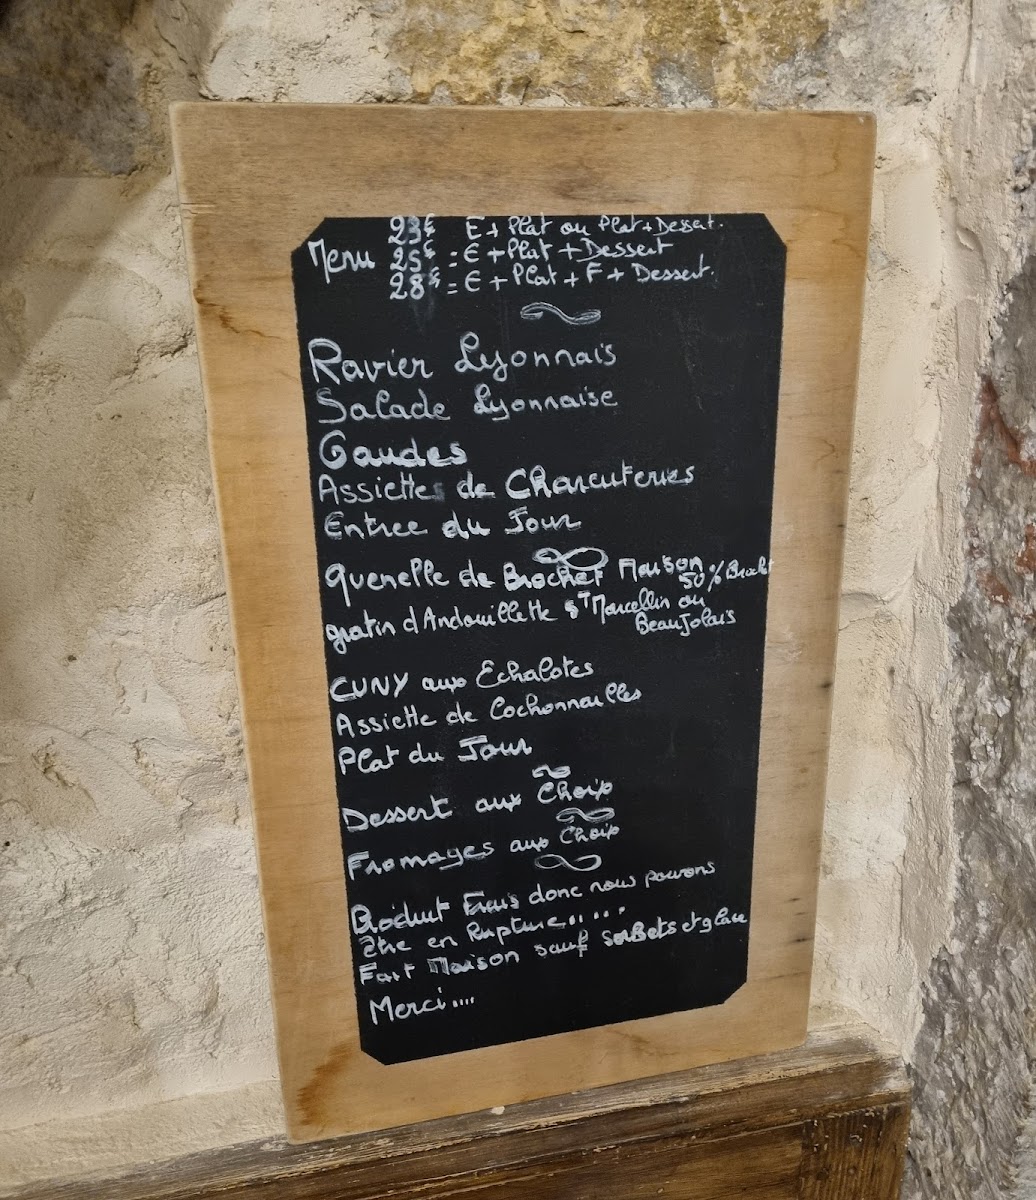 Menu
23€ E + Plat ou Plat + Dessert.
25€ = E + Plat + Dessert
28€ = E + Plat + F + Dessert.
Ravier Lyonnais
Salade Lyonnaise
Gaudes
Assiettes de Charcuteries
Entree du Jour
Quenelle de Brochet Maison
50% Brochet
gratin d'Andouillette St Marcellin ou
Beaujolais
CUNY aux Echalotes
Assiette de Cochonnailles
Plat du Jour
Dessert aux Choix
Fromages aux Choix
Produit Frais donc nous pouvons
être en Rupture......
Fait Maison sauf sorBets et glace
Merci....